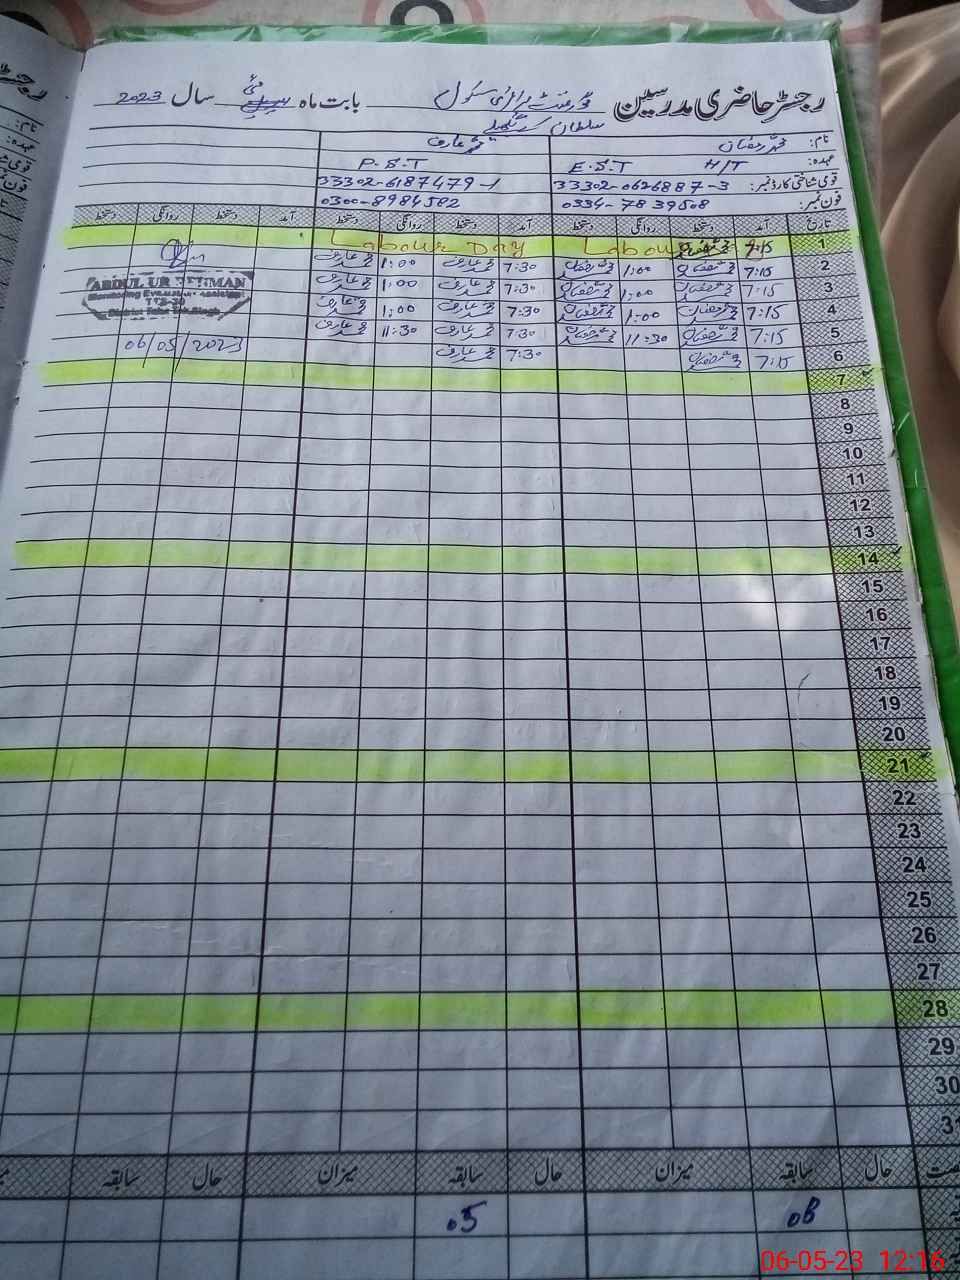 رجسٹر حاضری مدرسین گورنمنٹ پرائمری سکول بابت ماہ مئی سال 2023
سلطان
نام: محمد رمضان محمد عارف
عہدہ: H/T E.S.T P.S.T
قومی شناختی کارڈ نمبر: 33302-0626887-3 33302-6187479-1
فون نمبر: 0334-7839508 0300-8984582
تاریخ آمد دستخط روانگی دستخط آمد دستخط روانگی دستخط آمد دستخط روانگی دستخط
1 7:15 Labour Labour Day
2 7:15 محمد رمضان 1:00 محمد رمضان 7:30 محمد عارف 1:00 محمد عارف
3 7:15 محمد رمضان 1:00 محمد رمضان 7:30 محمد عارف 1:00 محمد عارف
4 7:15 محمد رمضان 1:00 محمد رمضان 7:30 محمد عارف 1:00 محمد عارف
5 7:15 محمد رمضان 11:30 محمد رمضان 7:30 محمد عارف 11:30 محمد عارف
6 7:15 محمد رمضان 7:30 محمد عارف
ABDUL UR REHMAN
Monitoring Evaluation Assistant
District Toba Tek Singh
06/05/2023
7
8
9
10
11
12
13
14
15
16
17
18
19
20
21
22
23
24
25
26
27
28
29
30
31
حال سابقہ میزان حال سابقہ میزان حال سابقہ
08 05
06-05-23 12:16